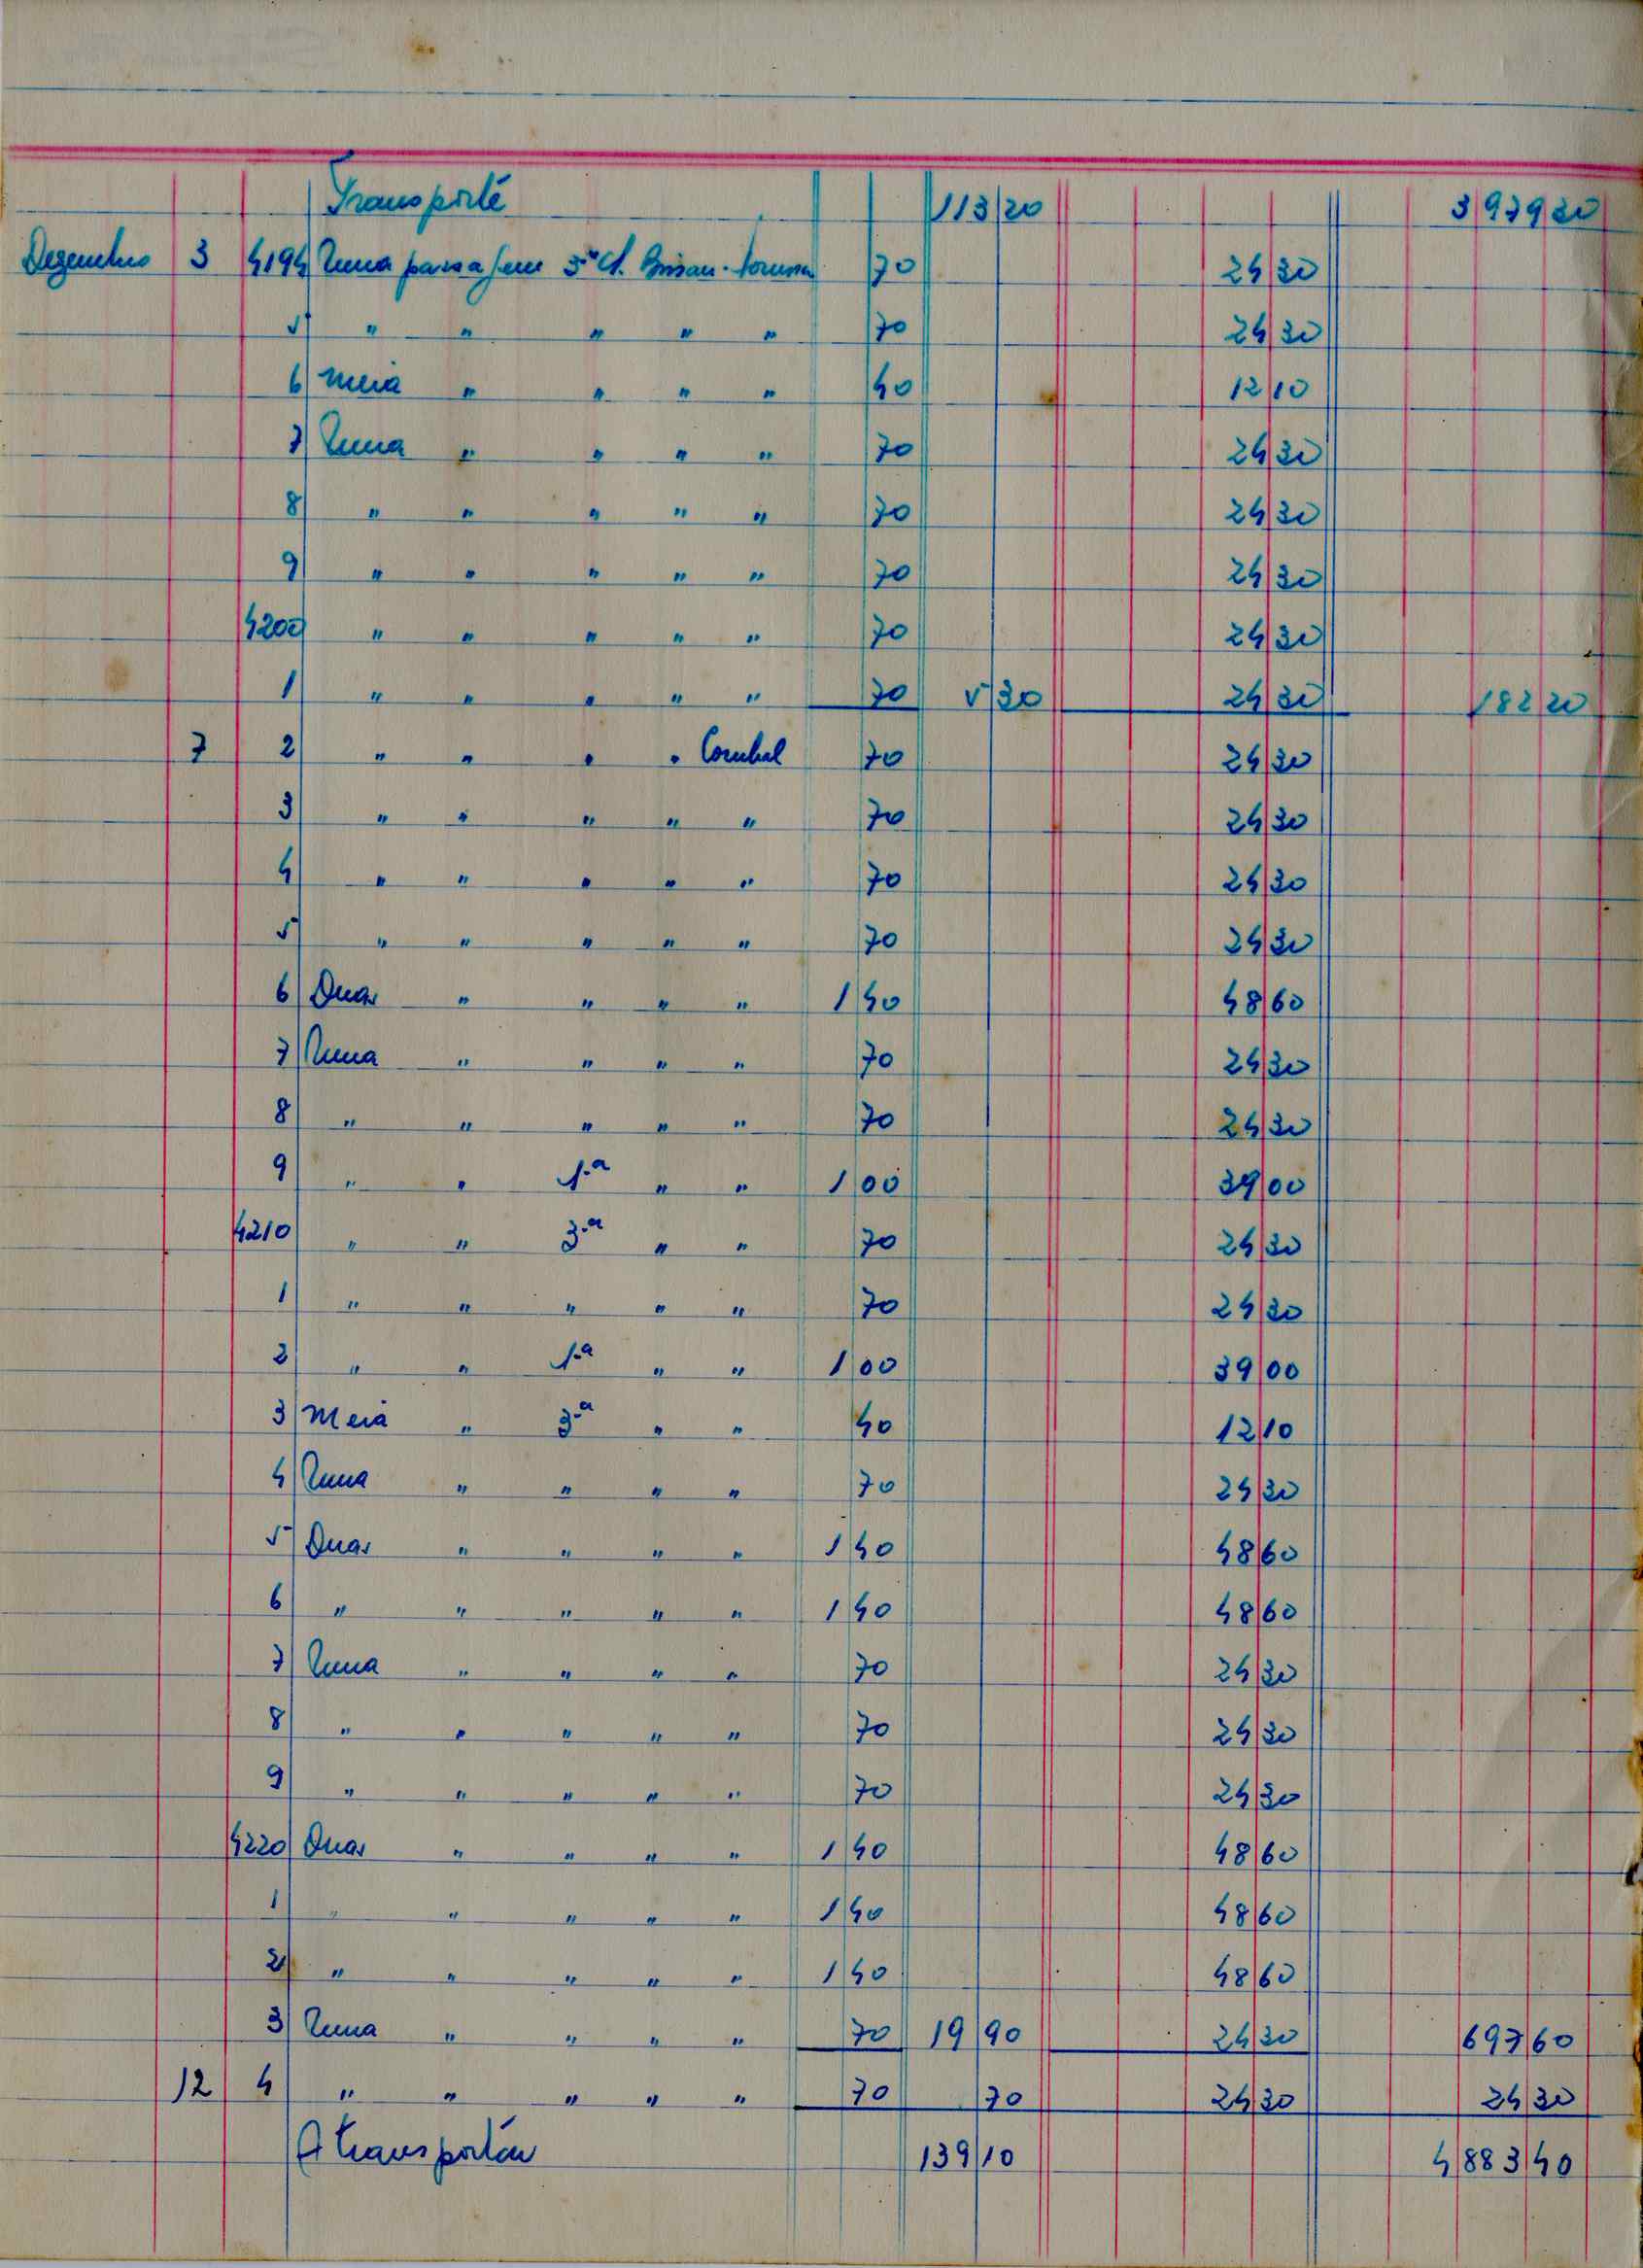 Transporte 113 20 3979 30
Dezembro 3 4194 Uma passagem 3ª cl. Bissau- 70 24 30
5 " " " " " 70 24 30
6 Meia " " " " 40 12 10
7 Uma " " " " 70 24 30
8 " " " " " 70 24 30
9 " " " " " 70 24 30
4200 " " " " " 70 24 30
1 " " " " " 70 5 30 24 30 182 20
7 2 " " " " Corubal 70 24 30
3 " " " " " 70 24 30
4 " " " " " 70 24 30
5 " " " " " 70 24 30
6 Duas " " " " 1 40 48 60
7 Uma " " " " 70 24 30
8 " " " " " 70 24 30
9 " " 1.ª " " 1 00 39 00
4210 " " 3.ª " " 70 24 30
1 " " " " " 70 24 30
2 " " 1.ª " " 1 00 39 00
3 Meia " 3.ª " " 40 12 10
4 Uma " " " " 70 24 30
5 Duas " " " " 1 40 48 60
6 " " " " " 1 40 48 60
7 Uma " " " " 70 24 30
8 " " " " " 70 24 30
9 " " " " " 70 24 30
4220 Duas " " " " 1 40 48 60
1 " " " " " 1 40 48 60
2 " " " " " 1 40 48 60
3 Uma " " " " 70 19 90 24 30 697 60
12 4 " " " " " 70 70 24 30 24 30
A transportar 139 10 4883 40